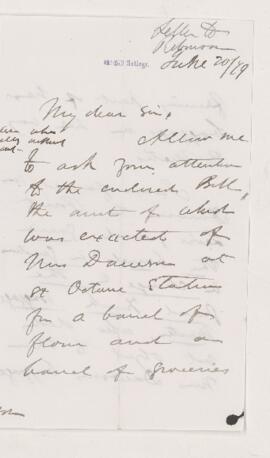 Letter to
Robinson
June 20/79
McGill College.
My dear Sir,
Allow me
to ask your attention
to the enclosed Bill,
the amt of which
was exacted of
Mrs Dawson at
St Octave Station
for a barrel of
flour and a
barrel of groceries